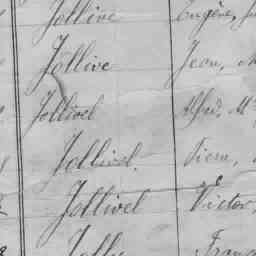 Jollive Eugène,
Jollive Jean,
Jollivel
Jollivel. Pierre,
Jollivel Victor,
Jolly Franç